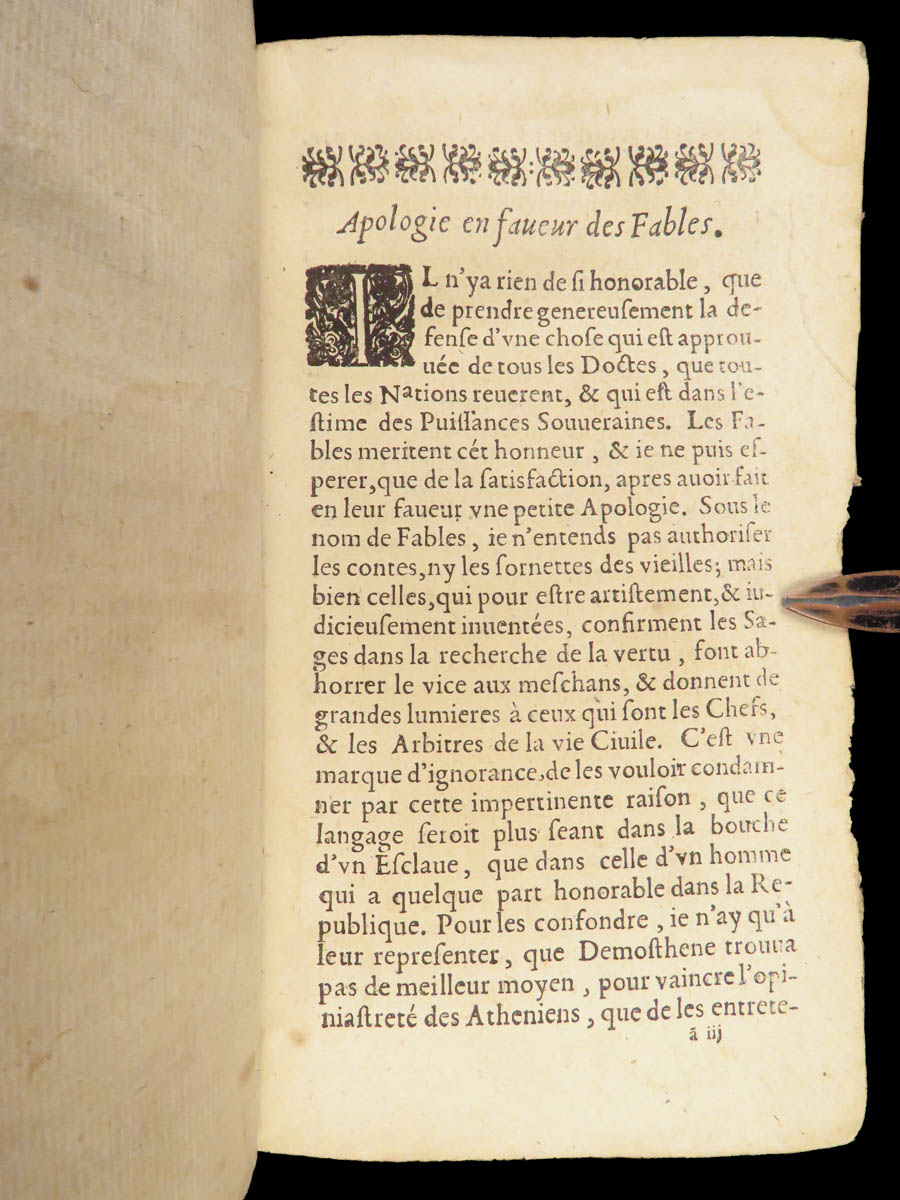 Apologie en faueur des Fables.
IL n'ya rien de ſi honorable, que
de prendre genereuſement la de-
fenſe d'vne choſe qui eſt approu-
uée de tous les Doctes, que tou-
tes les Nations reuerent, & qui eſt dans l'e-
ſtime des Puiſſances Souueraines. Les Fa-
bles meritent cét honneur, & ie ne puis eſ-
perer, que de la ſatisfaction, apres auoir fait
en leur faueur vne petite Apologie. Sous le
nom de Fables, ie n'entends pas authoriſer
les contes, ny les ſornettes des vieilles; mais
bien celles, qui pour eſtre artiſtement, & iu-
dicieuſement inuentées, confirment les Sa-
ges dans la recherche de la vertu, font ab-
horrer le vice aux meſchans, & donnent de
grandes lumieres à ceux qui ſont les Chefs,
& les Arbitres de la vie Ciuile. C'eſt vne
marque d'ignorance, de les vouloir condam-
ner par cette impertinente raiſon, que ce
langage ſeroit plus ſeant dans la bouche
d'vn Eſclaue, que dans celle d'vn homme
qui a quelque part honorable dans la Re-
publique. Pour les confondre, ie n'ay qu'à
leur repreſenter, que Demoſthene trouua
pas de meilleur moyen, pour vaincre l'opi-
niaſtreté des Atheniens, que de les entrete-
ã iij